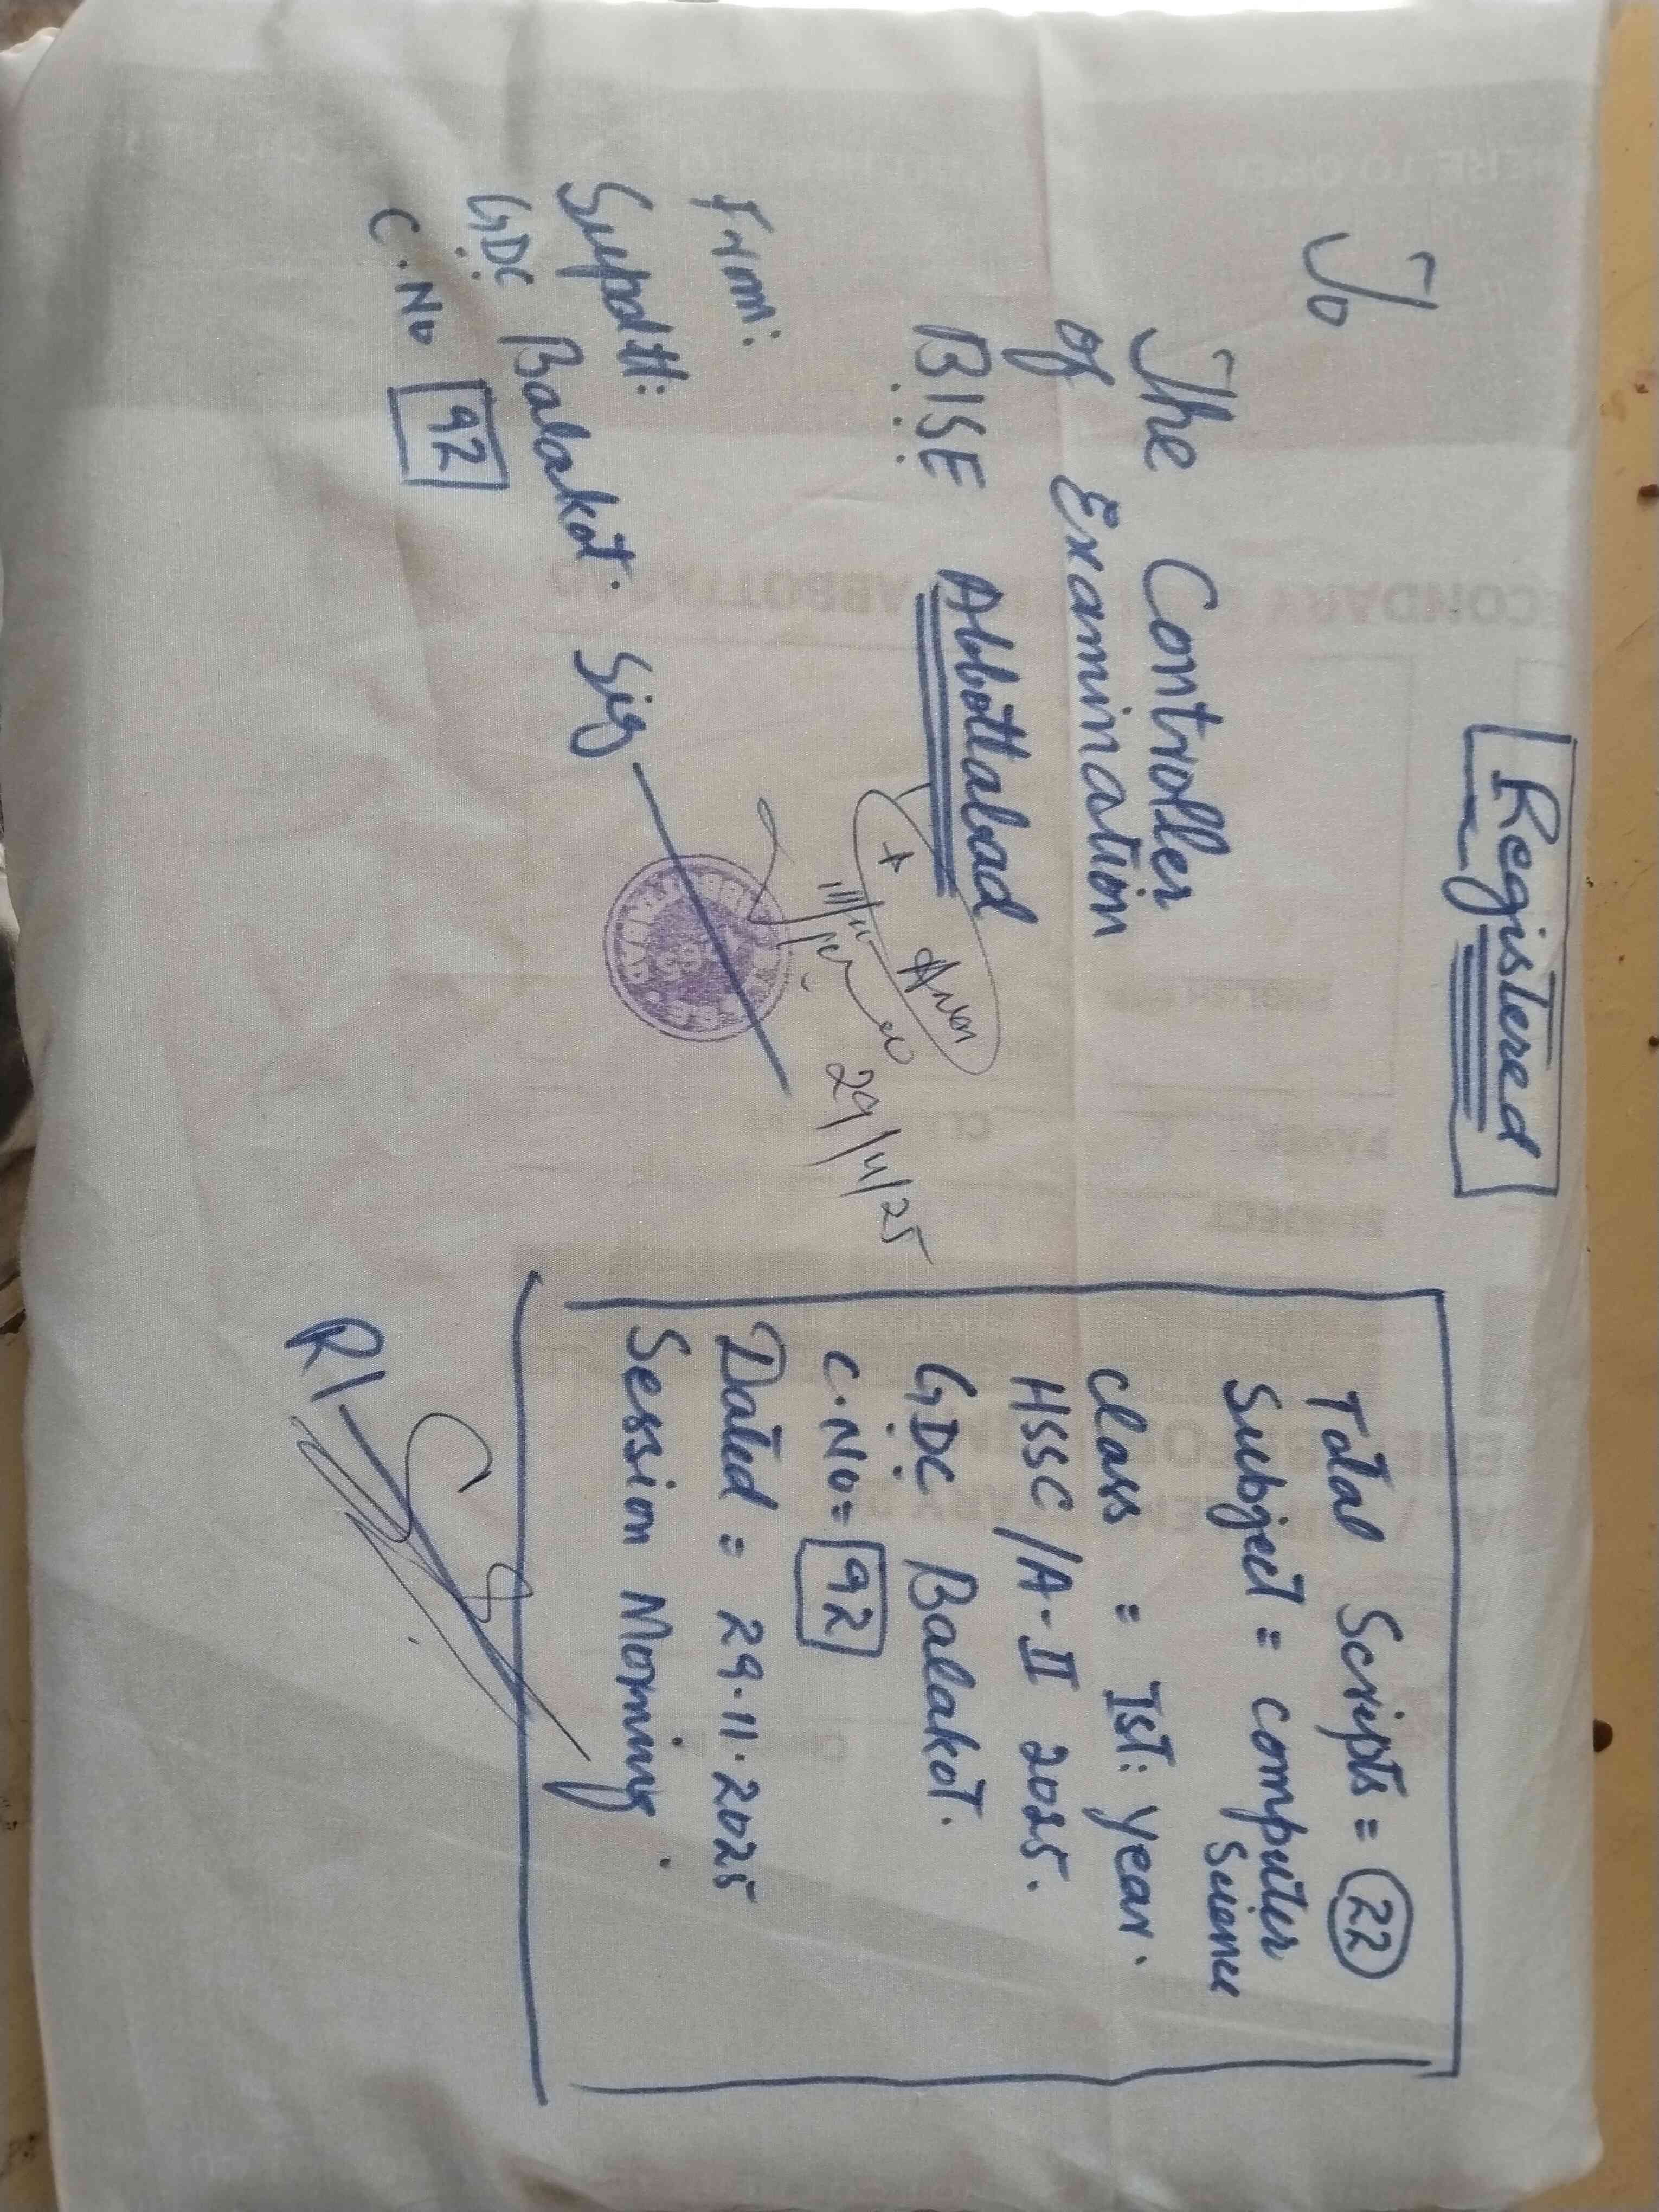 Registered
To
The Controller
of Examination
B.I.S.E Abbottabad
From:
Supdtt:
G.D.C Balakot. Sig
C.No 92
29/11/25
Total Scripts = 22
Subject = computer
Science
class = Ist: year.
HSSC /A-II 2025.
G.D.C Balakot.
C.No = 92
Dated = 29.11.2025
Session Morning.
RI